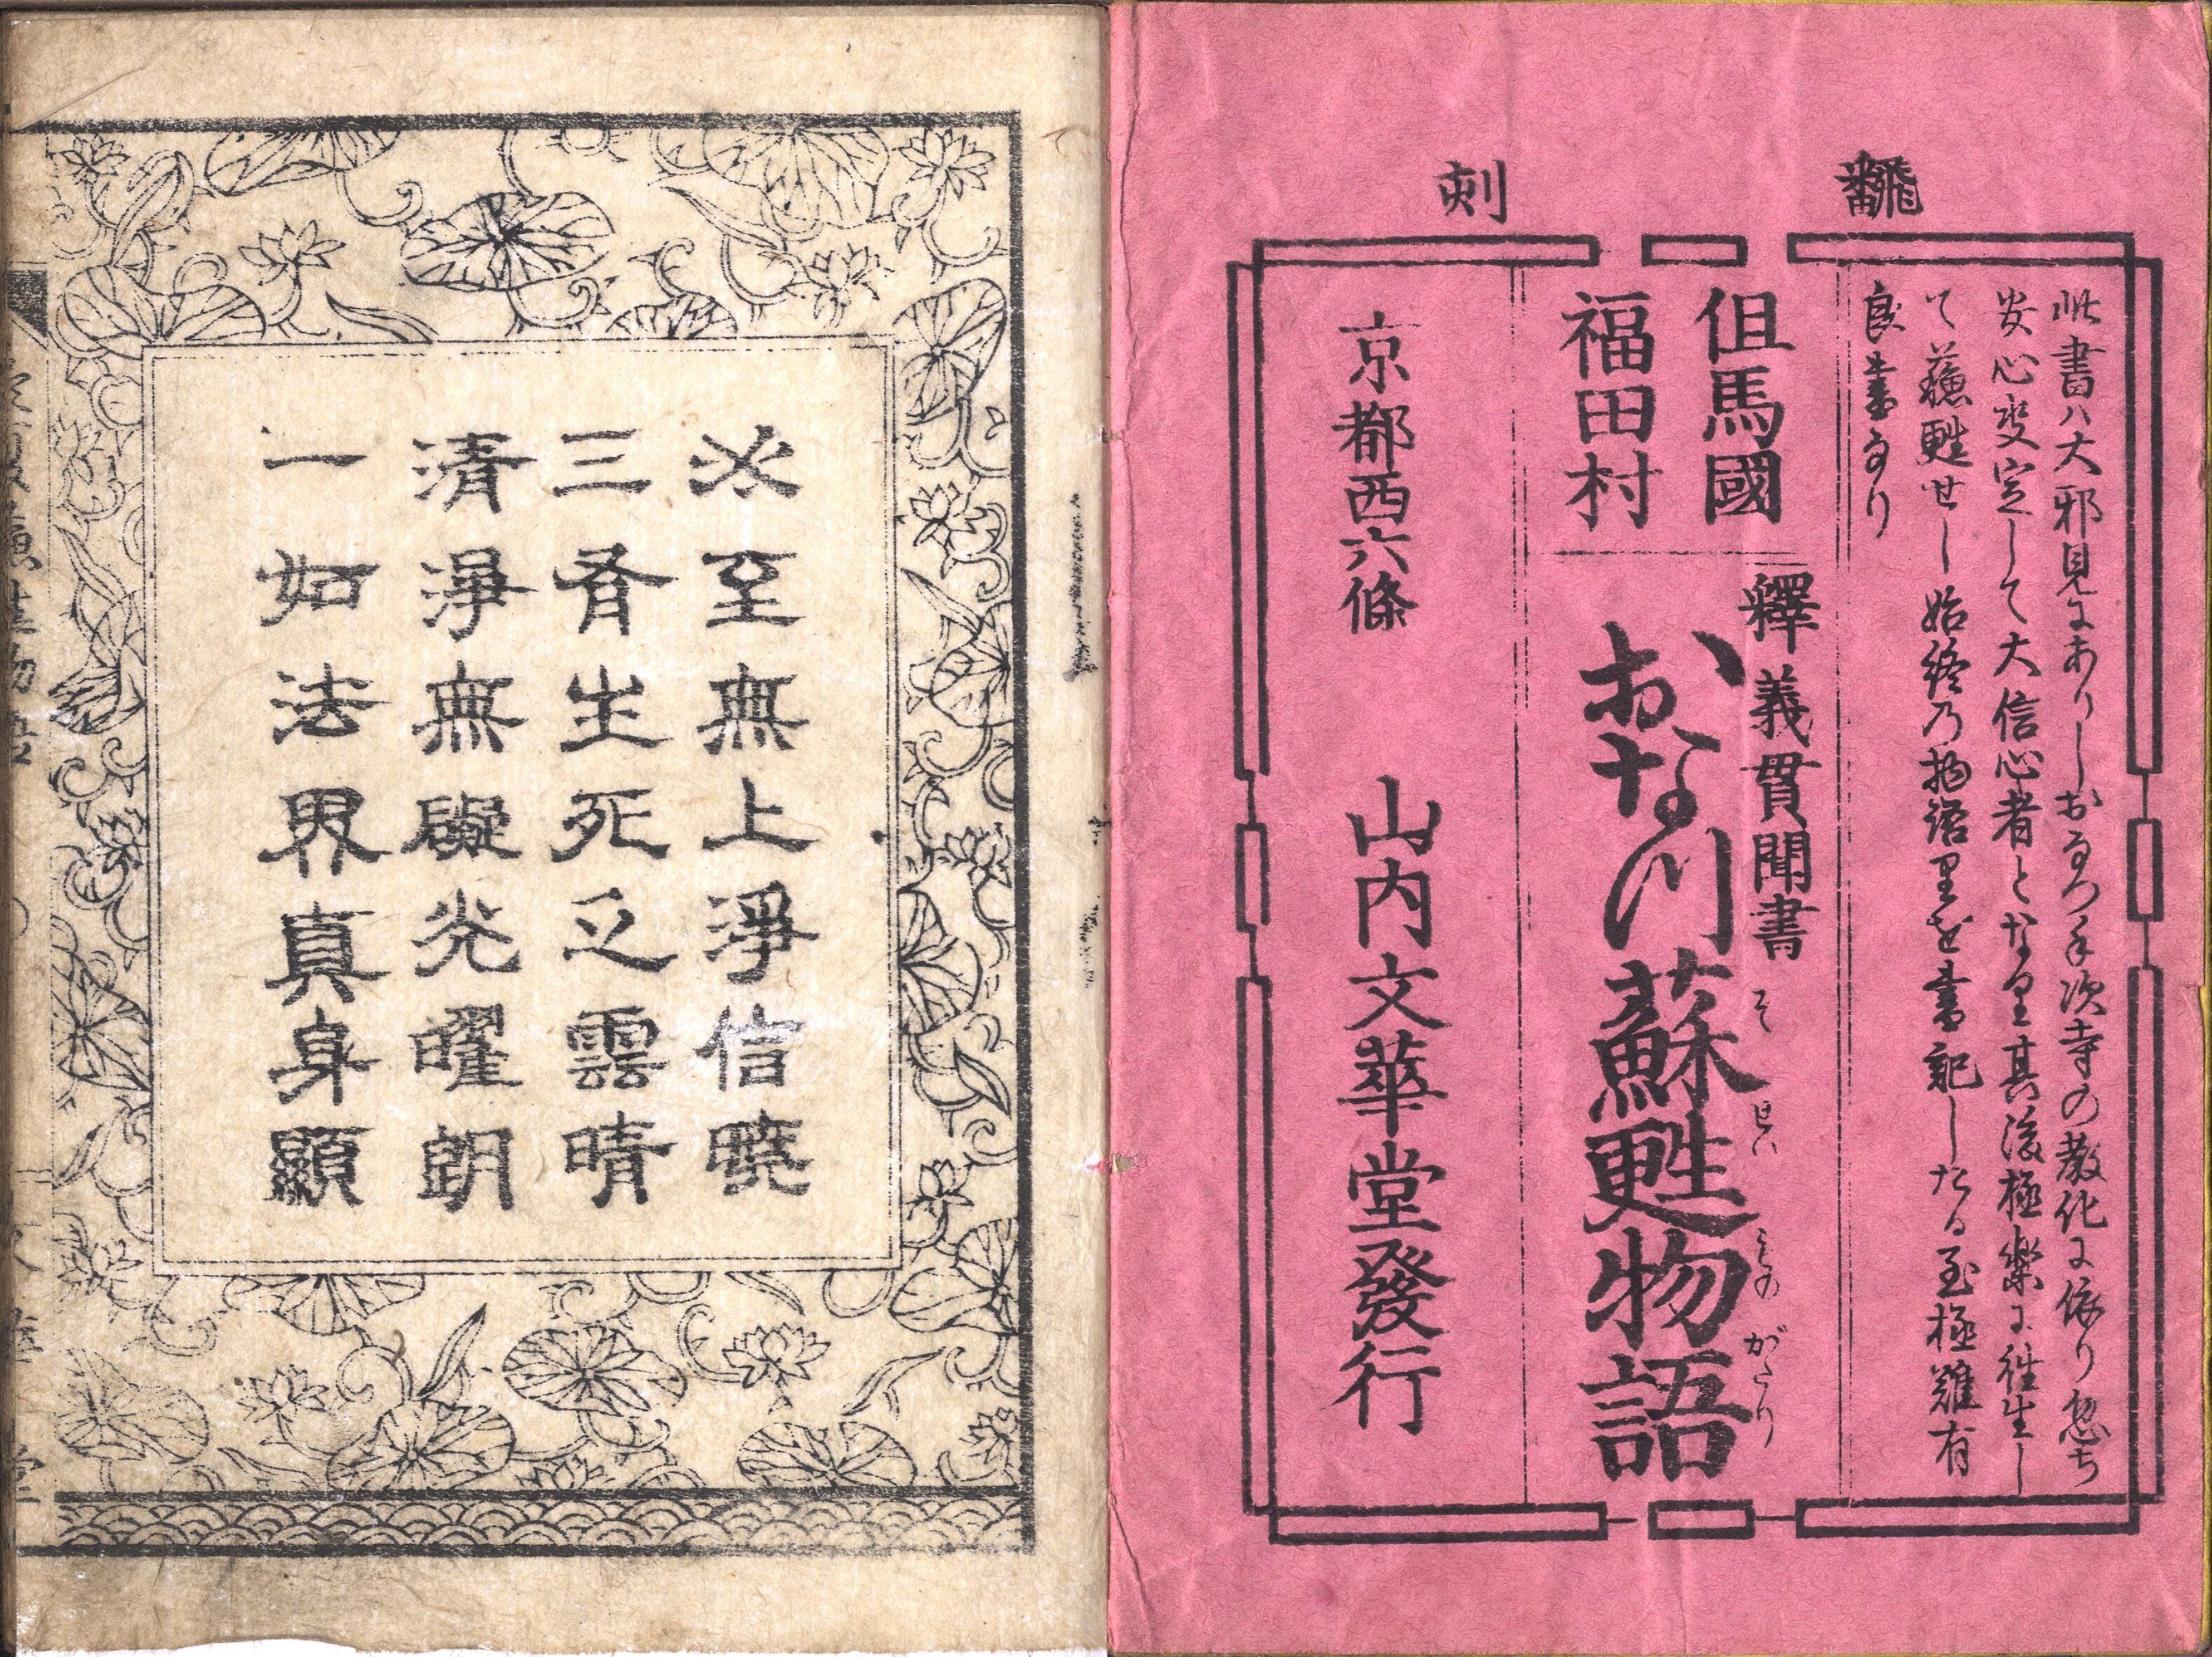 翻刻
此書ハ大邪見にありしおなつ手次寺の教化に依り忽ち
安心决定して大信心者となり其後極楽に往生し
て蘓甦せし始終乃物語りを書記したる至極難有
良書なり
但馬國
福田村
釋義貫聞書
おな川蘇甦物語
そ せい もの がたり
京都西六條 山内文華堂發行
必至無上淨信曉
三有生死之雲晴
清淨無礙光曜朗
一如法界真身顯